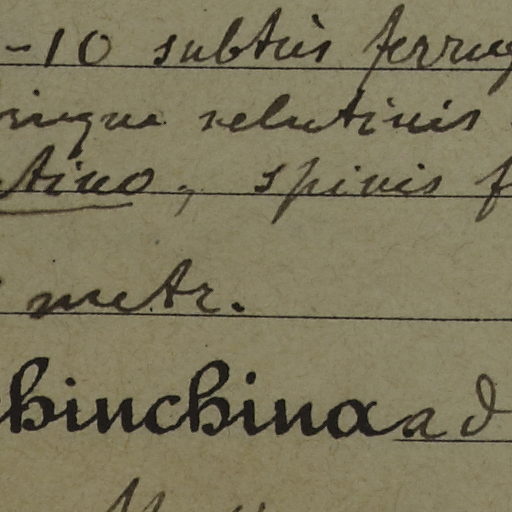 -10 subtus ferrug
ingue velutinis
tino, spinis f
metr.
hinchina ad